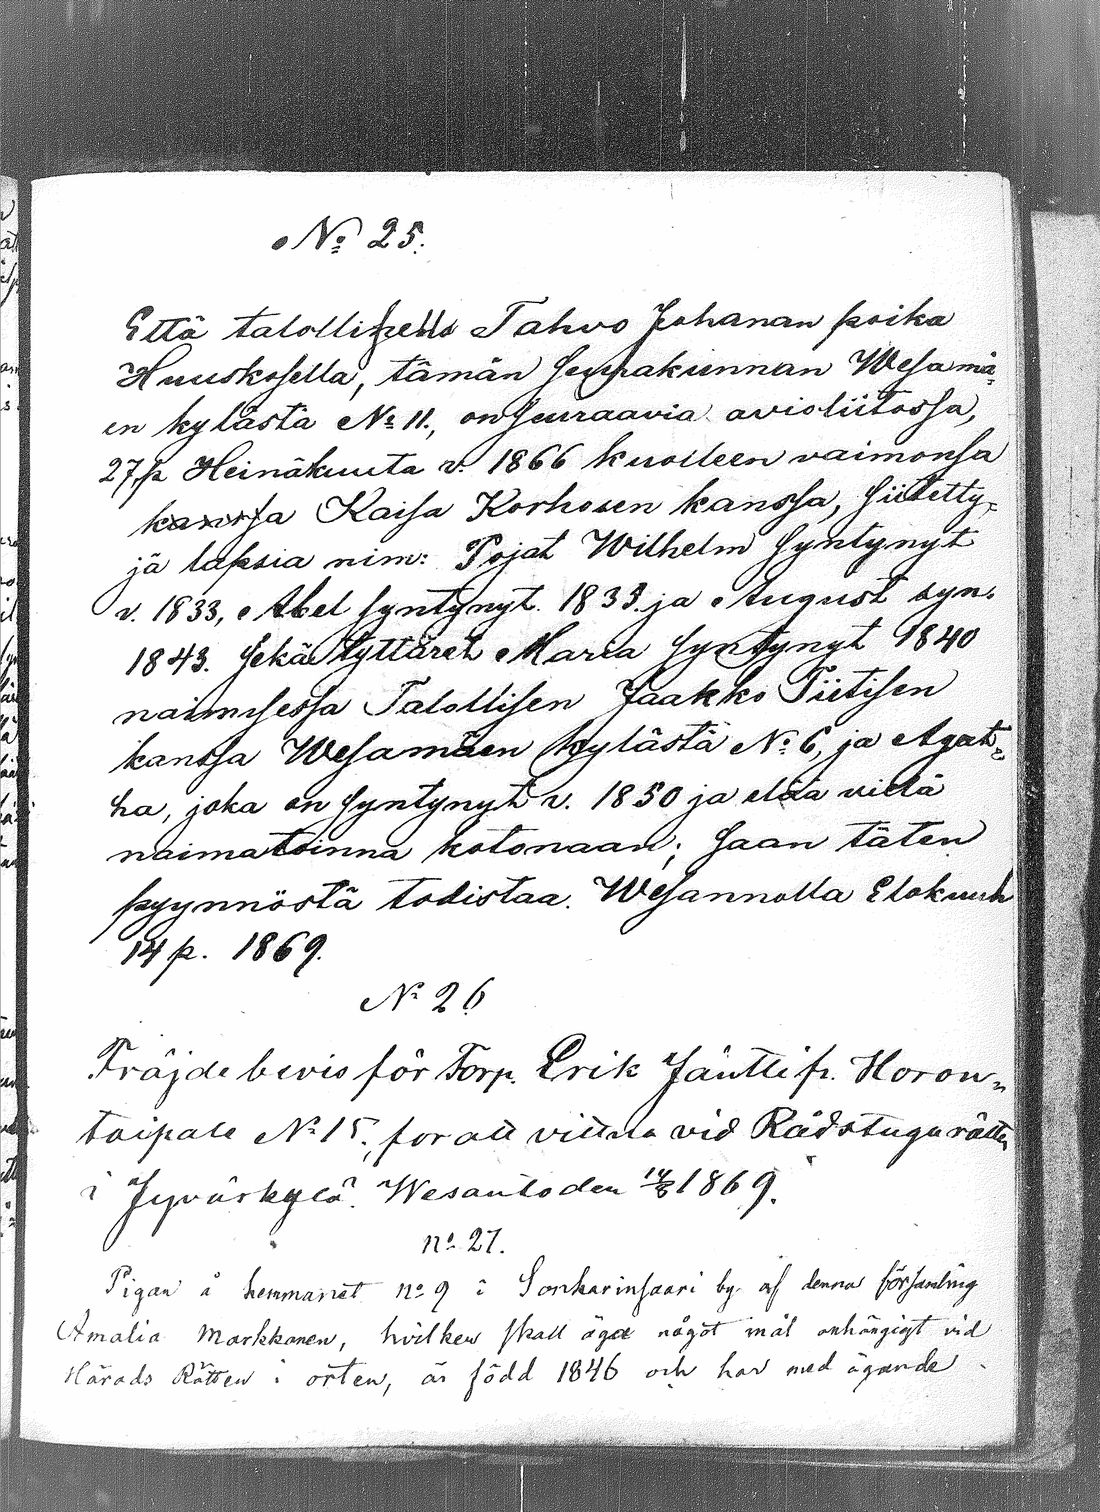 No 25.
Että talollisella Tahvo Johanan poika
Huuskosella, tämän seurakunnan Wesamä-
en kylästä No 11., on seuraavia avioliitossa,
27 p Heinäkuuta v. 1866 kuolleen vaimonsa
kanssa Kaisa Korhosen kanssa, siitetty-
jä lapsia nim: Pojat Wilhelm syntynyt
v. 1833, Abel syntynyt. 1833. ja August syn.
1843. sekä tyttäret Maria syntynyt 1840
naimisessa Talollisen Jaakko Tiitisen
kanssa Wesamäen kylästä No 6, ja Agat-
ha, joka on syntynyt v. 1850 ja elää vielä
naimatoinna kotonaan; saan täten
pyynnöstä todistaa. Wesannolla Elokuuh
14 p. 1869.
No 26
Fräjdebevis för Torp. Erik Jäntti fr. Horon-
taipale No 15, for att vittna vid Rådstugurätten
i Jyväskylä. Wesanto den 14/8 1869.
no 27.
Pigan å hemmanet no 9 i Sonkarinsaari by af denna församling
Amalia Markkanen, hvilken skall äga något mål anhängigt vid
Härads Rätten i orten, är född 1846 och har med ägande